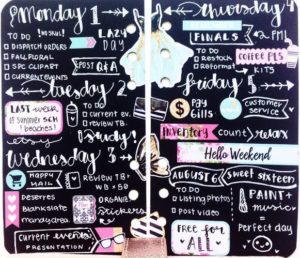 monday 1
TO DO
DISPATCH ORDERS
FAIL FLORAL
SBC CLIPART
CURRENT EVENTS
LAZY
DAY
POST Q&A
tuesday 2
LAST week
of Summer SCH
beaches!
TO DO
current ev.
review TB.
Study!
etsy
Wednesday 3
HAPPY
MAIL
REVIEW TB+
WB + SB
Deserres
Blank slate
ORGANIZE
Stickers
current events
PRESENTATION
thursday 4
FINALS
2 PM!
TO DO
Restock
Reformat
COFFEE PLS
KITS
friday 5
PAY
Gills
customer
service
Inventory
count relax
Hello Weekend
AUGUST 6
sweet sixteen
TO DO
Listing Photos
post video
PAINT +
music
=
perfect day
FREE for
ALL